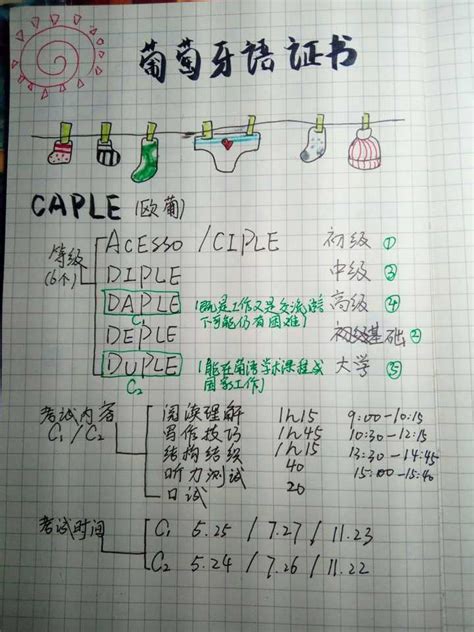 葡萄牙语证书
CAPLE (欧葡)
等级 (6个)
ACESSO / CIPLE 初级 ①
DIPLE 中级 ③
DAPLE C1 (既是工作又是交流语言 高级 ④
下可能仍有困难)
DEPLE 基础 ②
DUPLE C2 (能在葡语学术课程或 大学 ⑤
国家工作)
考试内容 C1 / C2
阅读理解 1h15 9:00-10:15
写作技巧 1h45 10:30-12:15
结构 1h15 13:30-14:45
听力测试 40 15:00-15:40
口试 20
考试时间
C1 5.25 / 7.27 / 11.23
C2 5.24 / 7.26 / 11.22